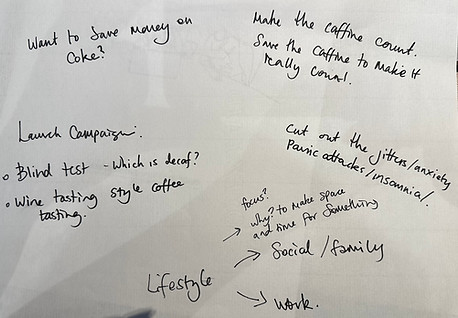 Want to save money on
Coke?
Make the caffine count.
Save the caffine to make it
really count.
Launch Campaign:
Blind test - which is decaf?
Wine tasting style coffee
tasting.
Cut out the jitters/anxiety
Panic attacks/insomnia/.
focus?
why? to make space
and time for something
Social / family
Lifestyle
work.